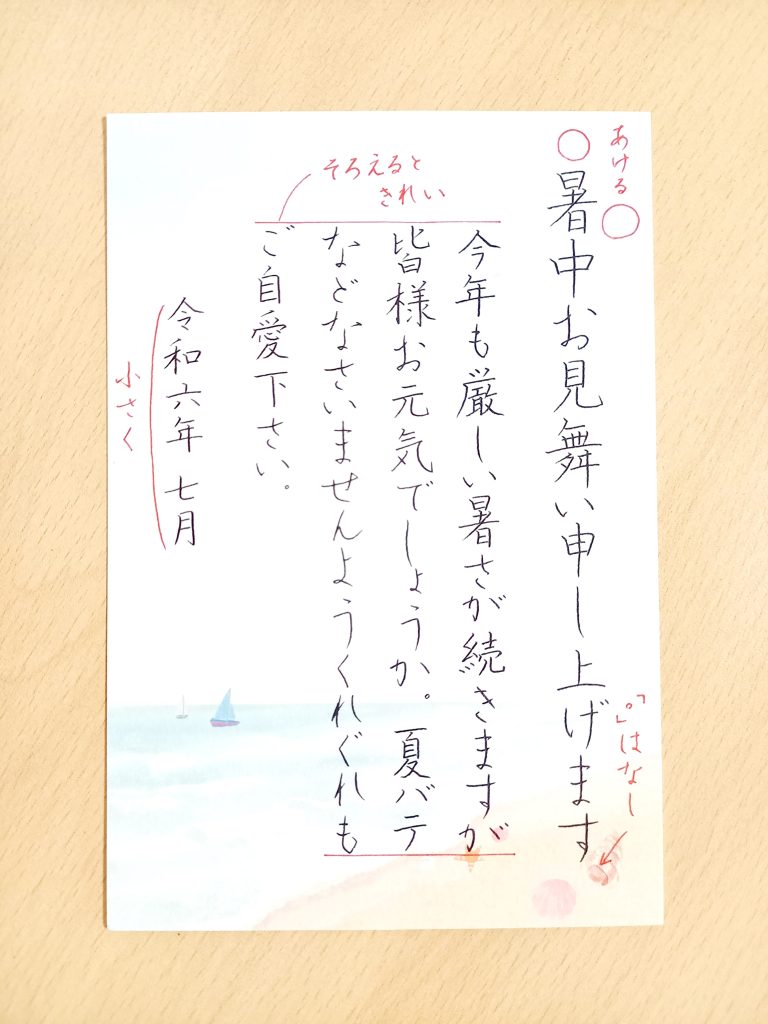 あける
暑中お見舞い申し上げます
「。」はなし
今年も厳しい暑さが続きますが
皆様お元気でしょうか。夏バテ
などなさいませんようくれぐれも
ご自愛下さい。
そろえると
きれい
令和六年七月
小さく